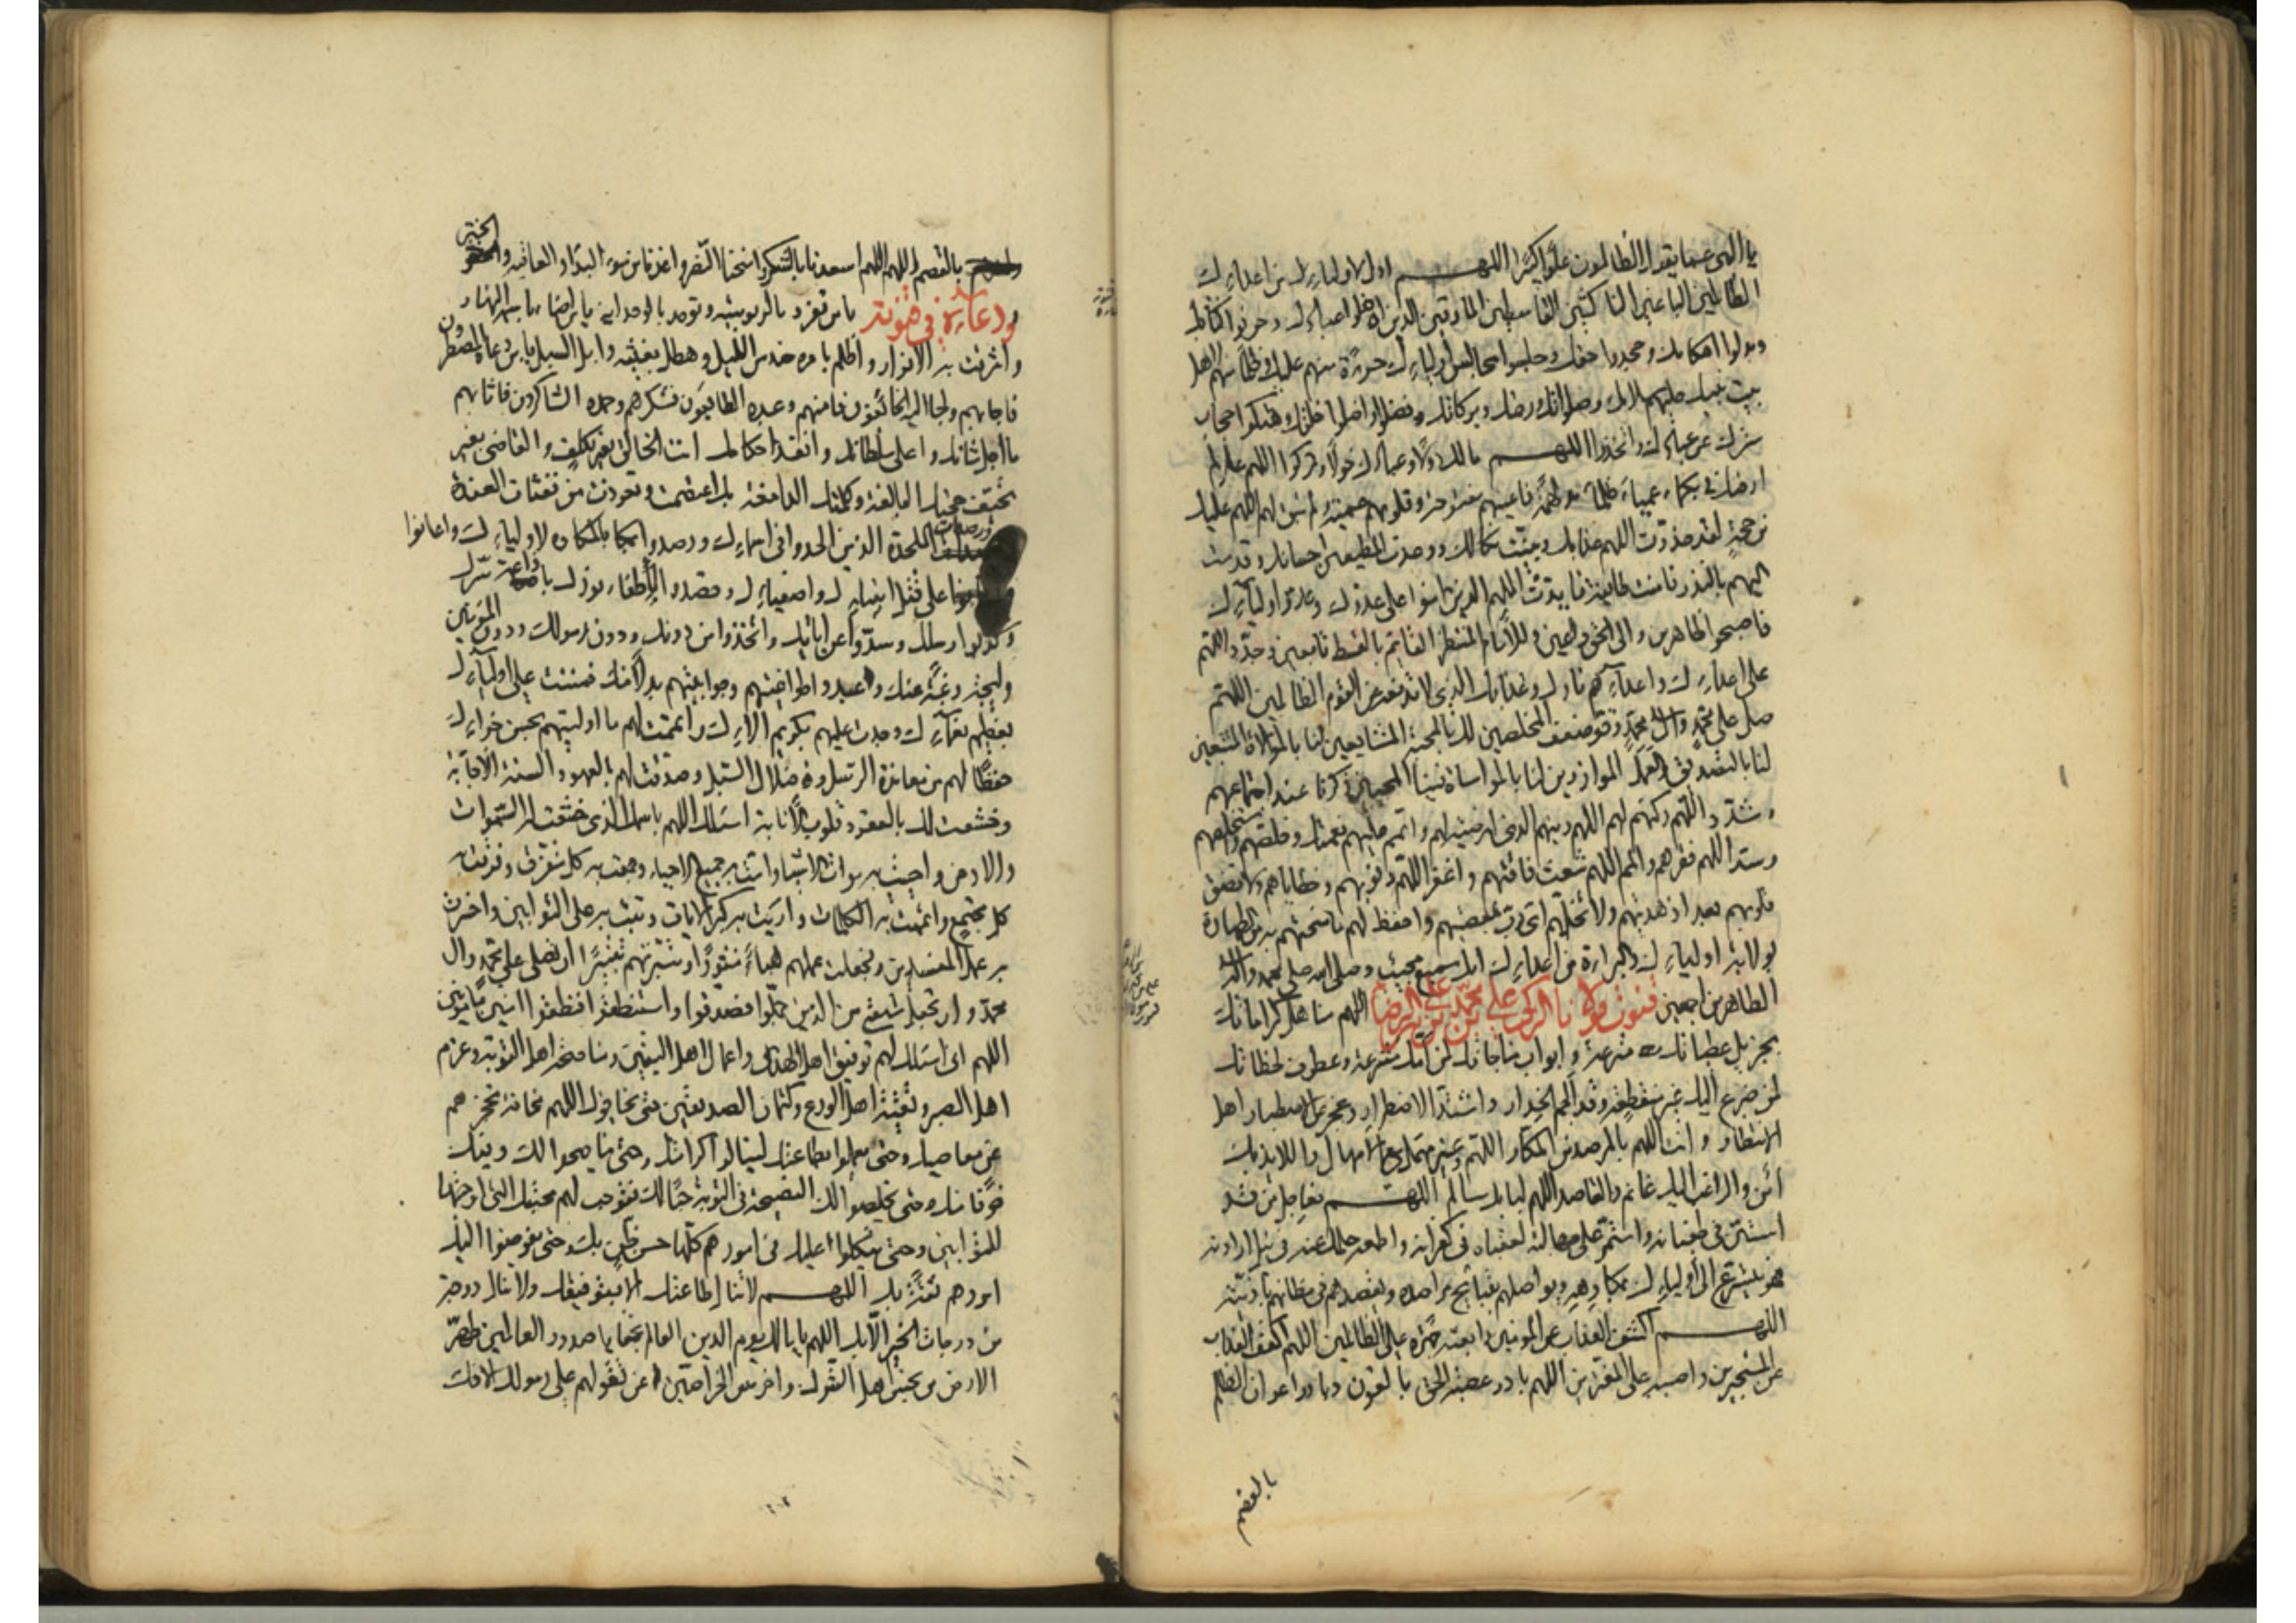 يا الهى عما يقول الظالمون علوا كبيرا اللهم ادل لاوليائك من اعدائك
الظالمين الباغين الناكثين القاسطين المارقين الذين اضلوا عبادك وحرفوا كتابك
وبدلوا احكامك وجحدوا حقك وجلسوا مجالس اوليائك جرأة منهم عليك وظلما منهم لاهل
بيت نبيك عليهم سلامك وصلواتك ورحمتك وبركاتك فضلوا واضلوا خلقك وهتكوا حجاب
سترك عن عبادك واتخذوا اللهم مالك دولا وعبادك خولا وتركوا اللهم عالم
ارضك في بكماء عمياء ظلماء مدلهمة فاعينهم مفتوحة وقلوبهم عمية ولم تبق لهم اللهم عليك
من حجة لقد حذرت اللهم عذابك وبينت نكالك ووعدت المطيعين احسانك وقدمت
اليهم بالنذر فامنت طائفة فايدت اللهم الذين امنوا على عدوك وعدو اوليائك
فاصبحوا ظاهرين والى الحق داعين وللامام المنتظر القائم بالقسط تابعين وجدد اللهم
على اعدائك واعدائهم نارك وعذابك الذى لا تدفعه عن القوم الظالمين اللهم
صل على محمد وال محمد وقو ضعف المخلصين لك بالمحبة المشايعين لنا بالموالاة المتبعين
لنا بالتصديق والعمل الموازرين لنا بالمواساة فينا المحيين ذكرنا عند اجتماعهم
وشدد اللهم ركنهم لهم اللهم دينهم الذى ارتضيته لهم واتمم عليهم نعمتك وخلصهم واستخلصهم
وسد اللهم فقرهم والمم اللهم شعث فاقتهم واغفر اللهم ذنوبهم وخطاياهم ولا تزغ
قلوبهم بعد اذ هديتهم ولا تخلهم اى رب بمعصيتهم واحفظ لهم ما منحتهم به من الطهارة
بولاية اوليائك والبراءة من اعدائك انك سميع مجيب وصلى الله على محمد واله
الطاهرين اجمعين قنوت مولانا الزكى على بن محمد بن على الرضا اللهم مناهل كراماتك
بجزيل عطياتك مترعة وابواب مناجاتك لمن امك مشرعة وعطوف لحظاتك
لمن ضرع اليك غير منقطعة وقد الجم الحذار واشتد الاضطرار وعجز عن الاصطبار اهل
الانتظار وانت اللهم بالمرصد من المكار اللهم وغير مهمل مع الامهال واللائذ بك
امن والراغب اليك غانم والقاصد اللهم لبابك سالم اللهم فعاجل من قد
استن في طغيانه واستمر على جهالته لعقباه في كفرانه واطمعه حلمك عنه في نيل ارادته
فهو يتسرع الى اوليائك بمكارهه ويواصلهم بقبائح مراصده ويقصدهم في مظانهم باذيته
اللهم اكشف العذاب عن المؤمنين وابعثه جهرة على الظالمين اللهم اكفف العذاب
عن المستجيرين واصببه على المغترين اللهم بادر عصبة الحق بالعون وبادر اعوان الظلم
بالقصم
بالقصم اللهم اسعدنا بالشكر وامنحنا النصر واعذنا من سوء البداء والعاقبة والختر
ودعاؤه في قنوته يا من تفرد بالربوبية وتوحد بالوحدانية يا من اضاء باسمه النهار
واشرقت به الانوار واظلم بامره حندس الليل وهطل بغيثه وابل السيل يا من دعاه المضطرون
فاجابهم ولجأ اليه الخائفون فامنهم وعبده الطائعون فشكرهم وحمده الشاكرون فاثابهم
ما اجل شانك واعلى سلطانك وانفذ احكامك انت الخالق بغير تكلف والقاضى بغير
تحيف حجتك البالغة وكلمتك الدامغة بك اعتصمت وتعوذت من نفثات العندة
ورصدات الملحدة الذين الحدوا في اسمائك ورصدوا بالمكاره لاوليائك واعانوا
على قتل انبيائك واصفيائك وقصدوا لاطفاء نورك باذاعة سرك
وكذبوا رسلك وصدوا عن اياتك واتخذوا من دونك ودون رسولك ودون المؤمنين
وليجة رغبة عنك وعبدوا طواغيتهم وجوابيتهم بدلا منك فمننت على اوليائك
بعظيم نعمائك وجدت عليهم بكريم الائك واتممت لهم ما اوليتهم بحسن جزائك
حفظا لهم من معاندة الرسل وضلال السبل وصدقت لهم بالعهود السنة الاجابة
وخشعت لك بالعقود قلوب الانابة اسئلك اللهم باسمك الذى خشعت له السموات
والارض واحييت به موات الاشياء وامت به جميع الاحياء وجمعت به كل متفرق وفرقت به
كل مجتمع واتممت به الكلمات واريت به كبرى الايات وتبت به على التوابين واخسرت
به عمل المفسدين فجعلت عملهم هباء منثورا وتبرتهم تتبيرا ان تصلى على محمد وال
محمد وان تجعل شيعتى من الذين حملوا فصدقوا واستنطقوا فنطقوا امنين مامونين
اللهم انى اسئلك لهم توفيق اهل الهدى واعمال اهل اليقين ومناصحة اهل التوبة وعزم
اهل الصبر وتقية اهل الورع وكتمان الصديقين حتى يخافوك اللهم مخافة تحجزهم
عن معاصيك وحتى يعملوا بطاعتك لينالوا كرامتك وحتى يناصحوا لك وفيك
خوفا منك وحتى يخلصوا لك النصيحة في التوبة حبا لك فتوجب لهم محبتك التى اوجبتها
للتوابين وحتى يتوكلوا عليك في امورهم كلها حسن ظن بك وحتى يفوضوا اليك
امورهم ثقة بك اللهم لا تنال طاعتك الا بتوفيقك ولا تنال درجة
من درجات الخير الا بك اللهم يا مالك يوم الدين العالم بخفايا صدور العالمين طهر
الارض من نجس اهل الشرك واخرس الخراصين عن تقولهم على رسولك الافك